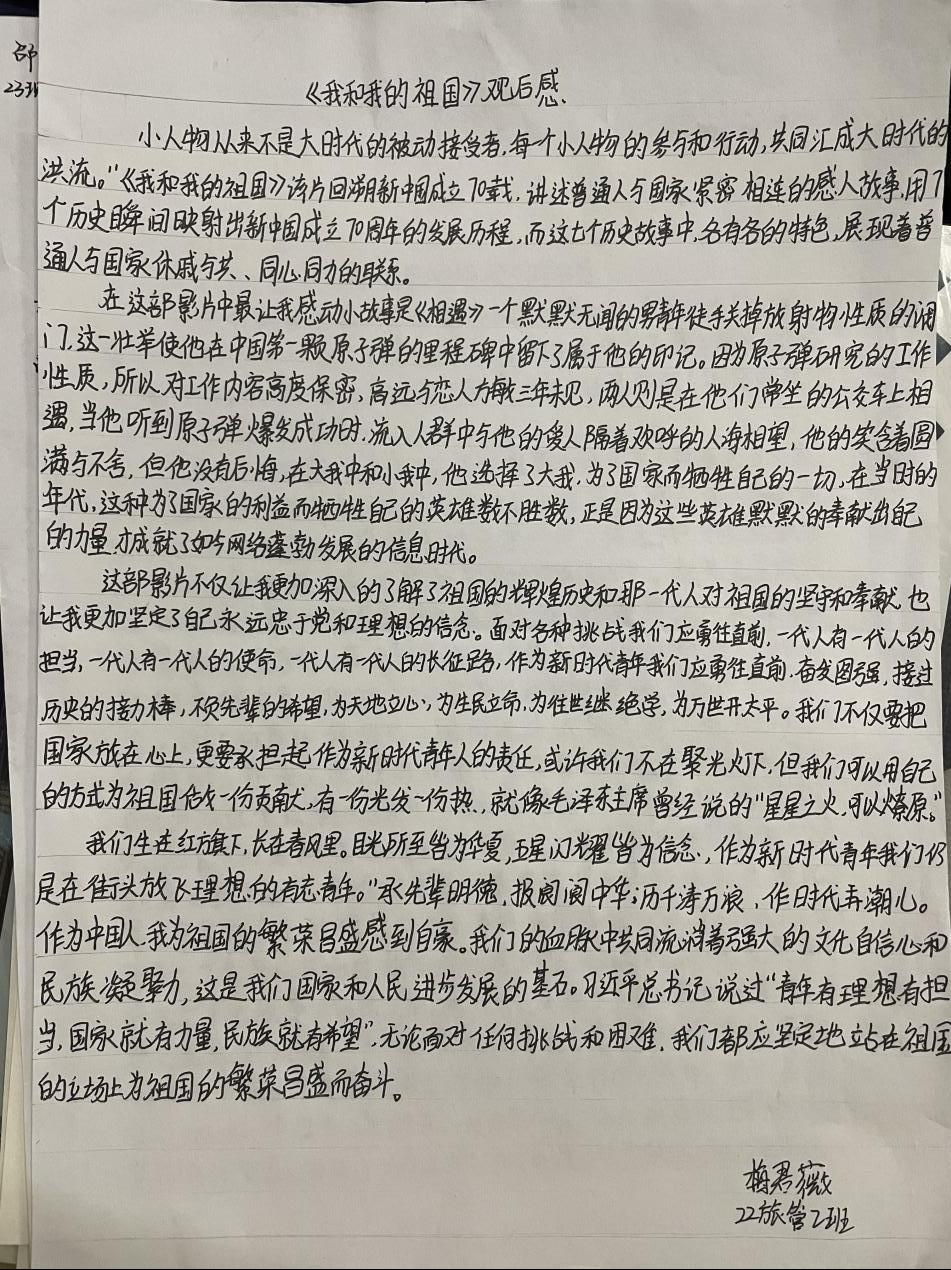 邵
《我和我的祖国》观后感.
小人物从来不是大时代的被动接受者,每个小人物的参与和行动,共同汇成大时代的
洪流。"《我和我的祖国》该片回溯新中国成立70载,讲述普通人与国家紧密相连的感人故事,用7
个历史瞬间映射出新中国成立70周年的发展历程,而这七个历史故事中,各有各的特色,展现着普
通人与国家休戚与共、同心同力的联系。
在这部影片中最让我感动小故事是《相遇》一个默默无闻的男青年徒手关掉放射物性质的阀
门,这一壮举使他在中国第一颗原子弹的里程碑中留下了属于他的印记。因为原子弹研究的工作
性质,所以对工作内容高度保密,高远与恋人方敏三年未见,两人则是在他们常坐的公交车上相
遇,当他听到原子弹爆发成功时,流入人群中与他的爱人隔着欢呼的人海相望,他的笑含着圆
满与不舍,但他没有后悔,在大我中和小我中,他选择了大我,为了国家而牺牲自己的一切,在当时的
年代,这种为了国家的利益而牺牲自己的英雄数不胜数,正是因为这些英雄默默的奉献出自己
的力量,才成就了如今网络蓬勃发展的信息时代。
这部影片不仅让我更加深入的了解了祖国的辉煌历史和那一代人对祖国的坚守和奉献,也
让我更加坚定了自己永远忠于党和理想的信念。面对各种挑战我们应勇往直前,一代人有一代人的
担当,一代人有一代人的使命,一代人有一代人的长征路,作为新时代青年我们应勇往直前,奋发图强,接过
历史的接力棒,不负先辈的希望,为天地立心,为生民立命,为往世继绝学,为万世开太平。我们不仅要把
国家放在心上,更要承担起作为新时代青年人的责任,或许我们不在聚光灯下,但我们可以用自己
的方式为祖国做一份贡献,有一份光发一份热,就像毛泽东主席曾经说的"星星之火,可以燎原。"
我们生在红旗下,长在春风里。目光所至皆为华夏,五星闪耀皆为信念,作为新时代青年我们仍
是在街头放飞理想的有志青年。"承先辈明德,报阆阆中华;历千涛万浪,作时代弄潮心。
作为中国人,我为祖国的繁荣昌盛感到自豪。我们的血脉中共同流淌着强大的文化自信心和
民族凝聚力,这是我们国家和人民进步发展的基石。习近平总书记说过"青年有理想有担
当,国家就有力量,民族就有希望",无论面对任何挑战和困难,我们都应坚定地站在祖国
的立场上为祖国的繁荣昌盛而奋斗。
梅君薇
22旅管2班